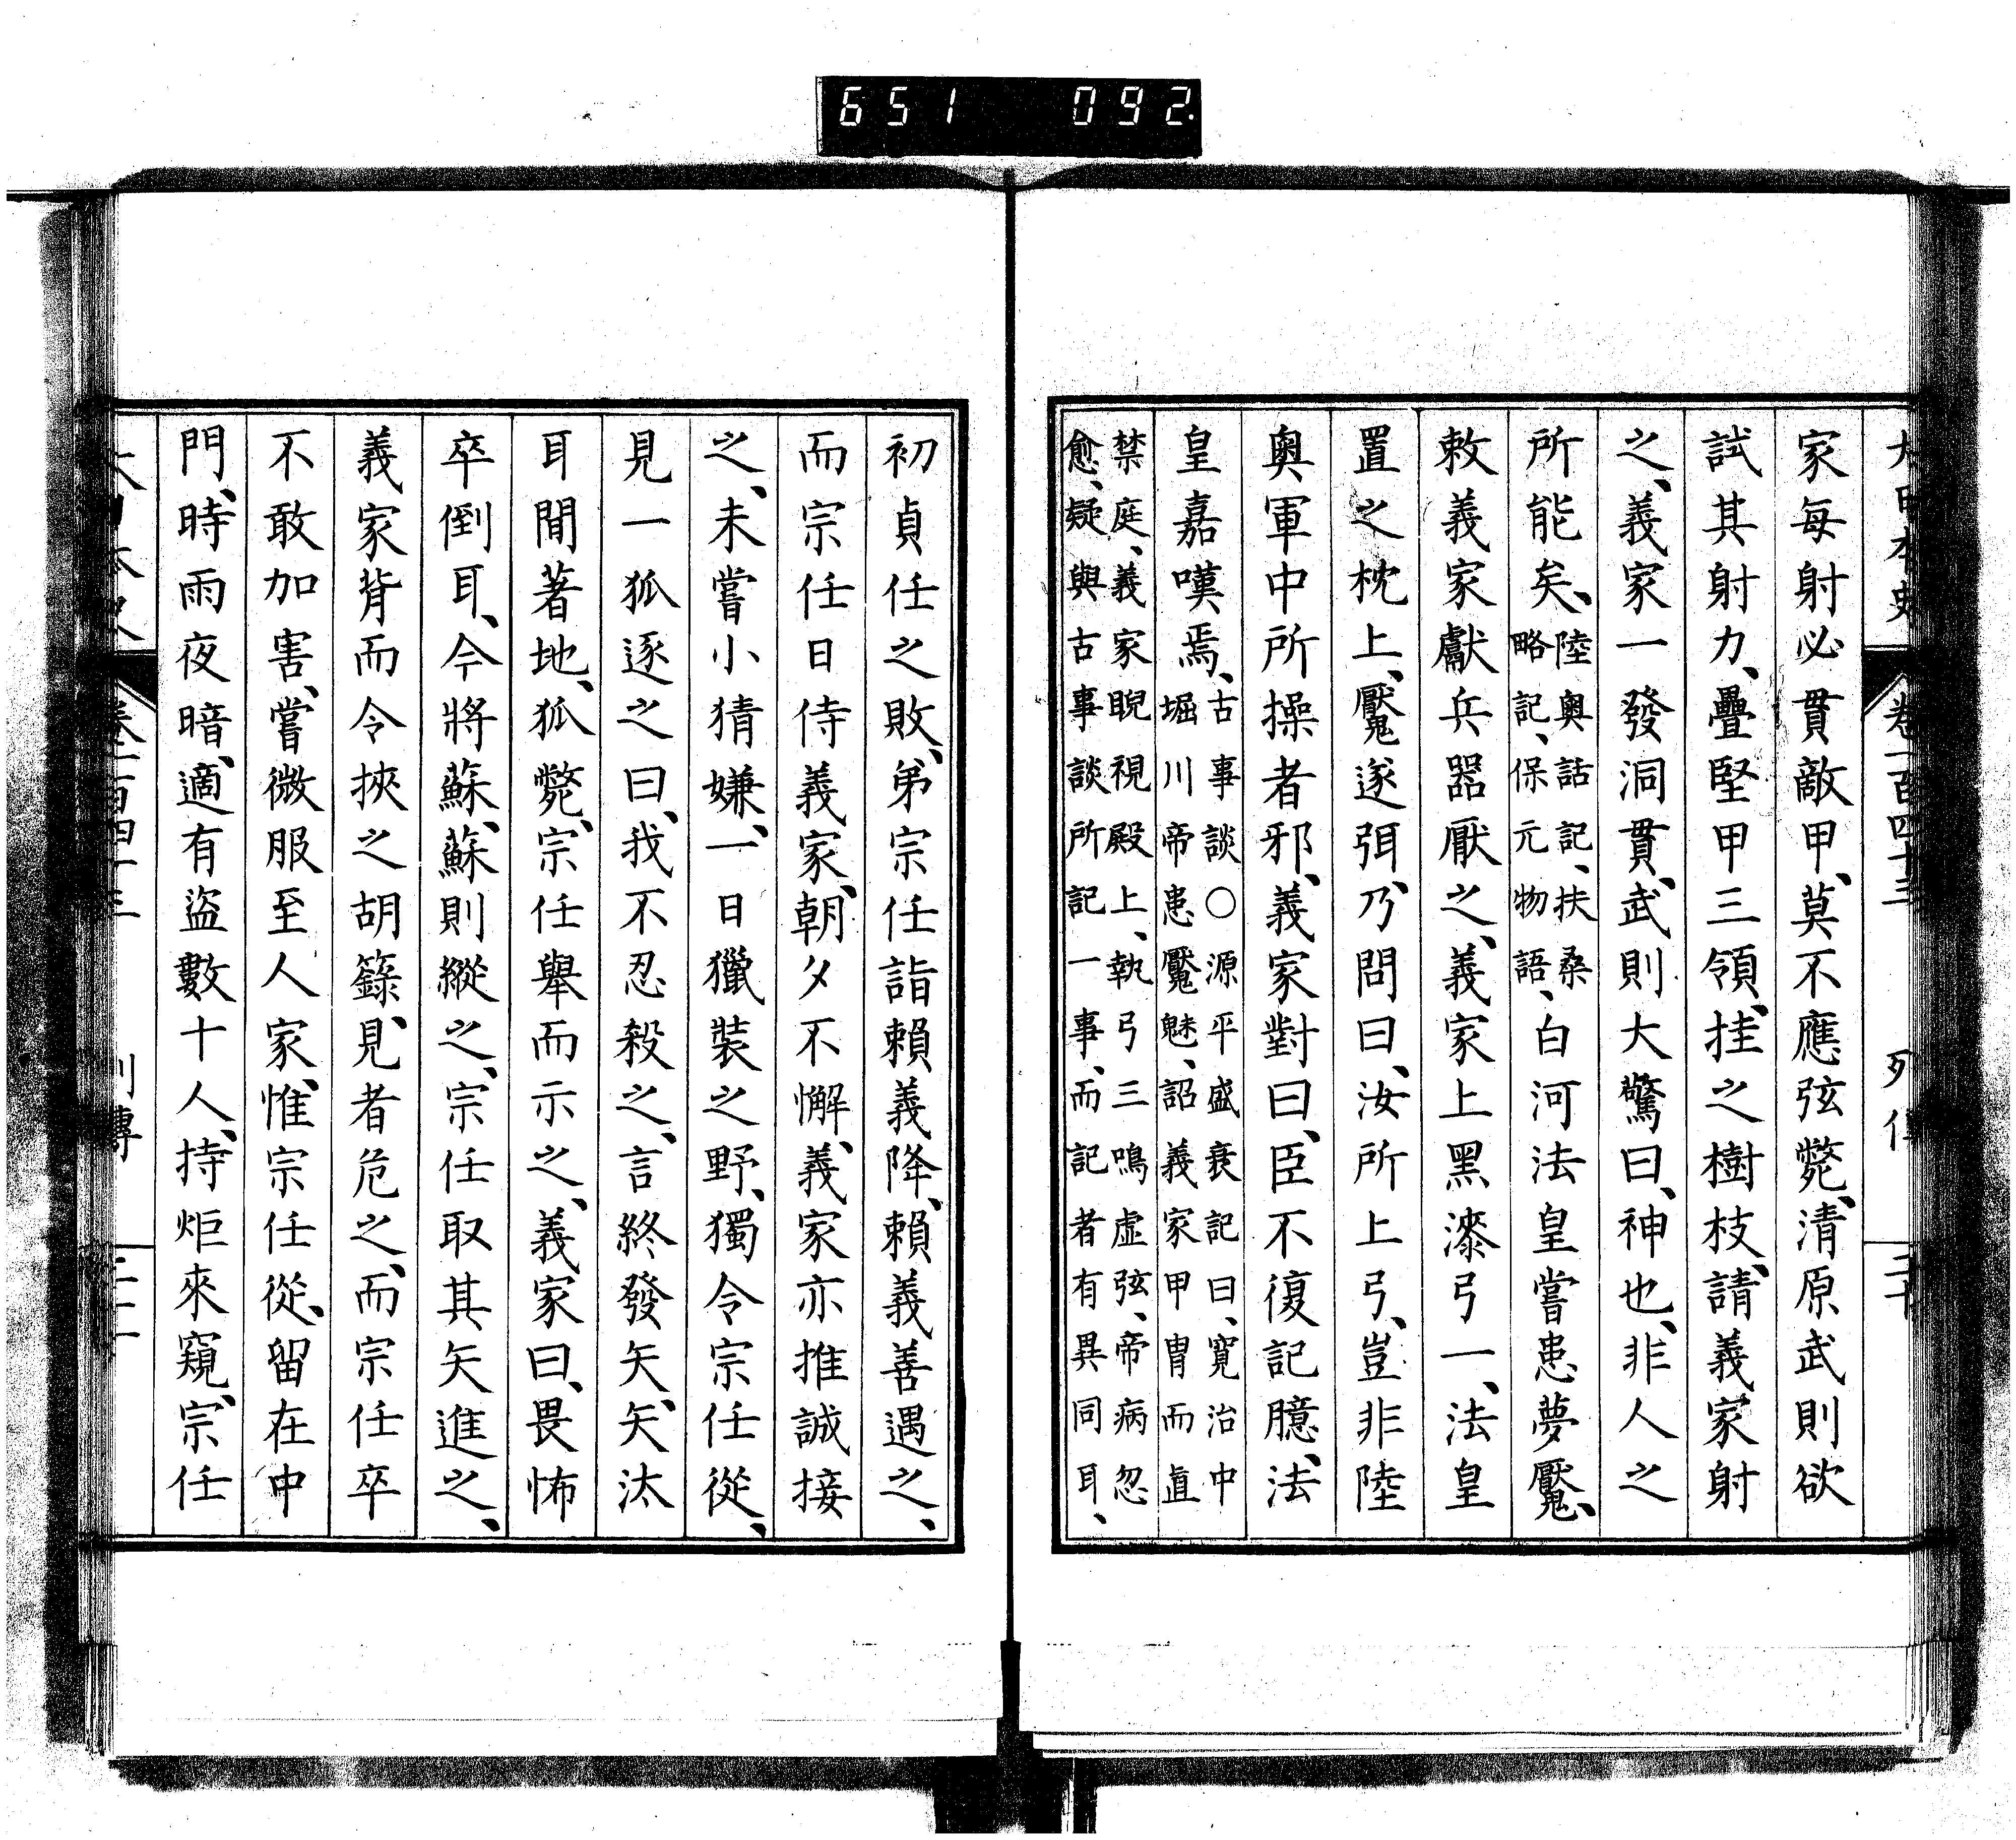 651 092.
大日本史 卷一百四十三 列傳 三十
家每射必貫敵甲、莫不應弦斃、清原武則欲
試其射力、疊堅甲三領、挂之樹枝、請義家射
之、義家一發洞貫、武則大驚曰、神也、非人之
所能矣、陸奧話記、扶桑略記、保元物語、白河法皇嘗患夢魘、
敕義家獻兵器厭之、義家上黑漆弓一、法皇
置之枕上、魘遂弭、乃問曰、汝所上弓、豈非陸
奧軍中所操者邪、義家對曰、臣不復記臆、法
皇嘉嘆焉、古事談〇源平盛衰記曰、寬治中堀川帝患魘魅、詔義家甲冑而直
禁庭、義家睨視殿上、執弓三鳴虛弦、帝病忽
愈、疑與古事談所記一事、而記者有異同耳、
初貞任之敗、弟宗任詣賴義降、賴義善遇之、
而宗任日侍義家、朝夕不懈、義家亦推誠接
之、未嘗小猜嫌、一日獵裝之野、獨令宗任從、
見一狐逐之曰、我不忍殺之、言終發矢、矢汰
耳間著地、狐斃、宗任舉而示之、義家曰、畏怖
卒倒耳、今將蘇、蘇則縱之、宗任取其矢進之、
義家背而令挾之胡籙、見者危之、而宗任卒
不敢加害、嘗微服至人家、惟宗任從、留在中
門、時雨夜暗、適有盜數十人、持炬來窺、宗任
大日本史 卷一百四十三 列傳